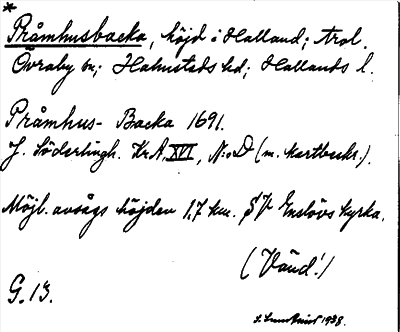 *
Pråmhusbacka, höjd i Halland; trol.
Övraby sn; Halmstads hd; Hallands l.
Pråmhus- Backa 1691.
J. Söderlingh. Kr.A. XVI, N:o D (m. kartbeskr.).
Möjl. avsågs höjden 1,7 km. SV Enslövs kyrka.
(Vänd!)
G. 13.
1938.